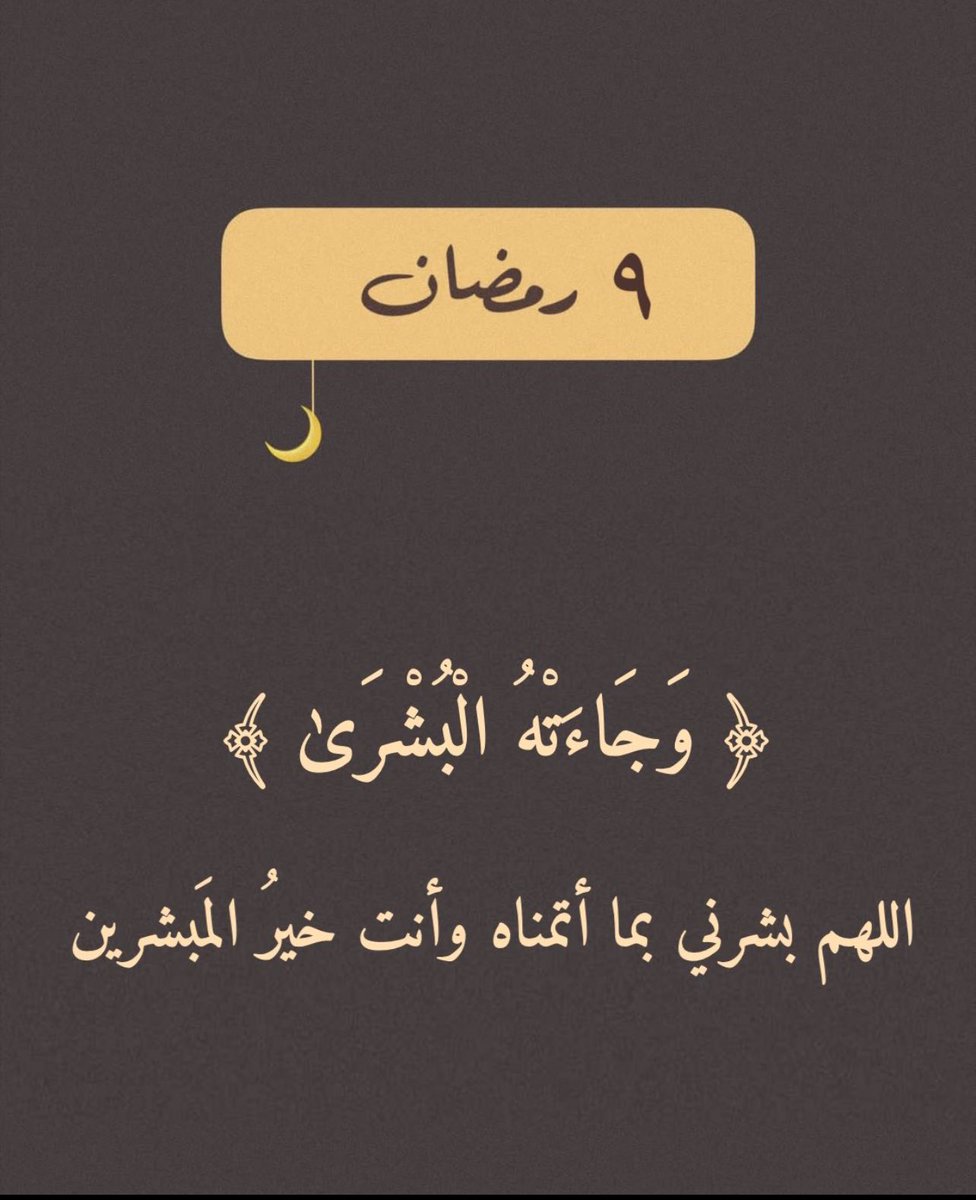 ٩ رمضان
﴿ وَجَاءَتْهُ الْبُشْرَىٰ ﴾
اللهم بشرني بما أتمناه وأنت خيرُ المَبشرين